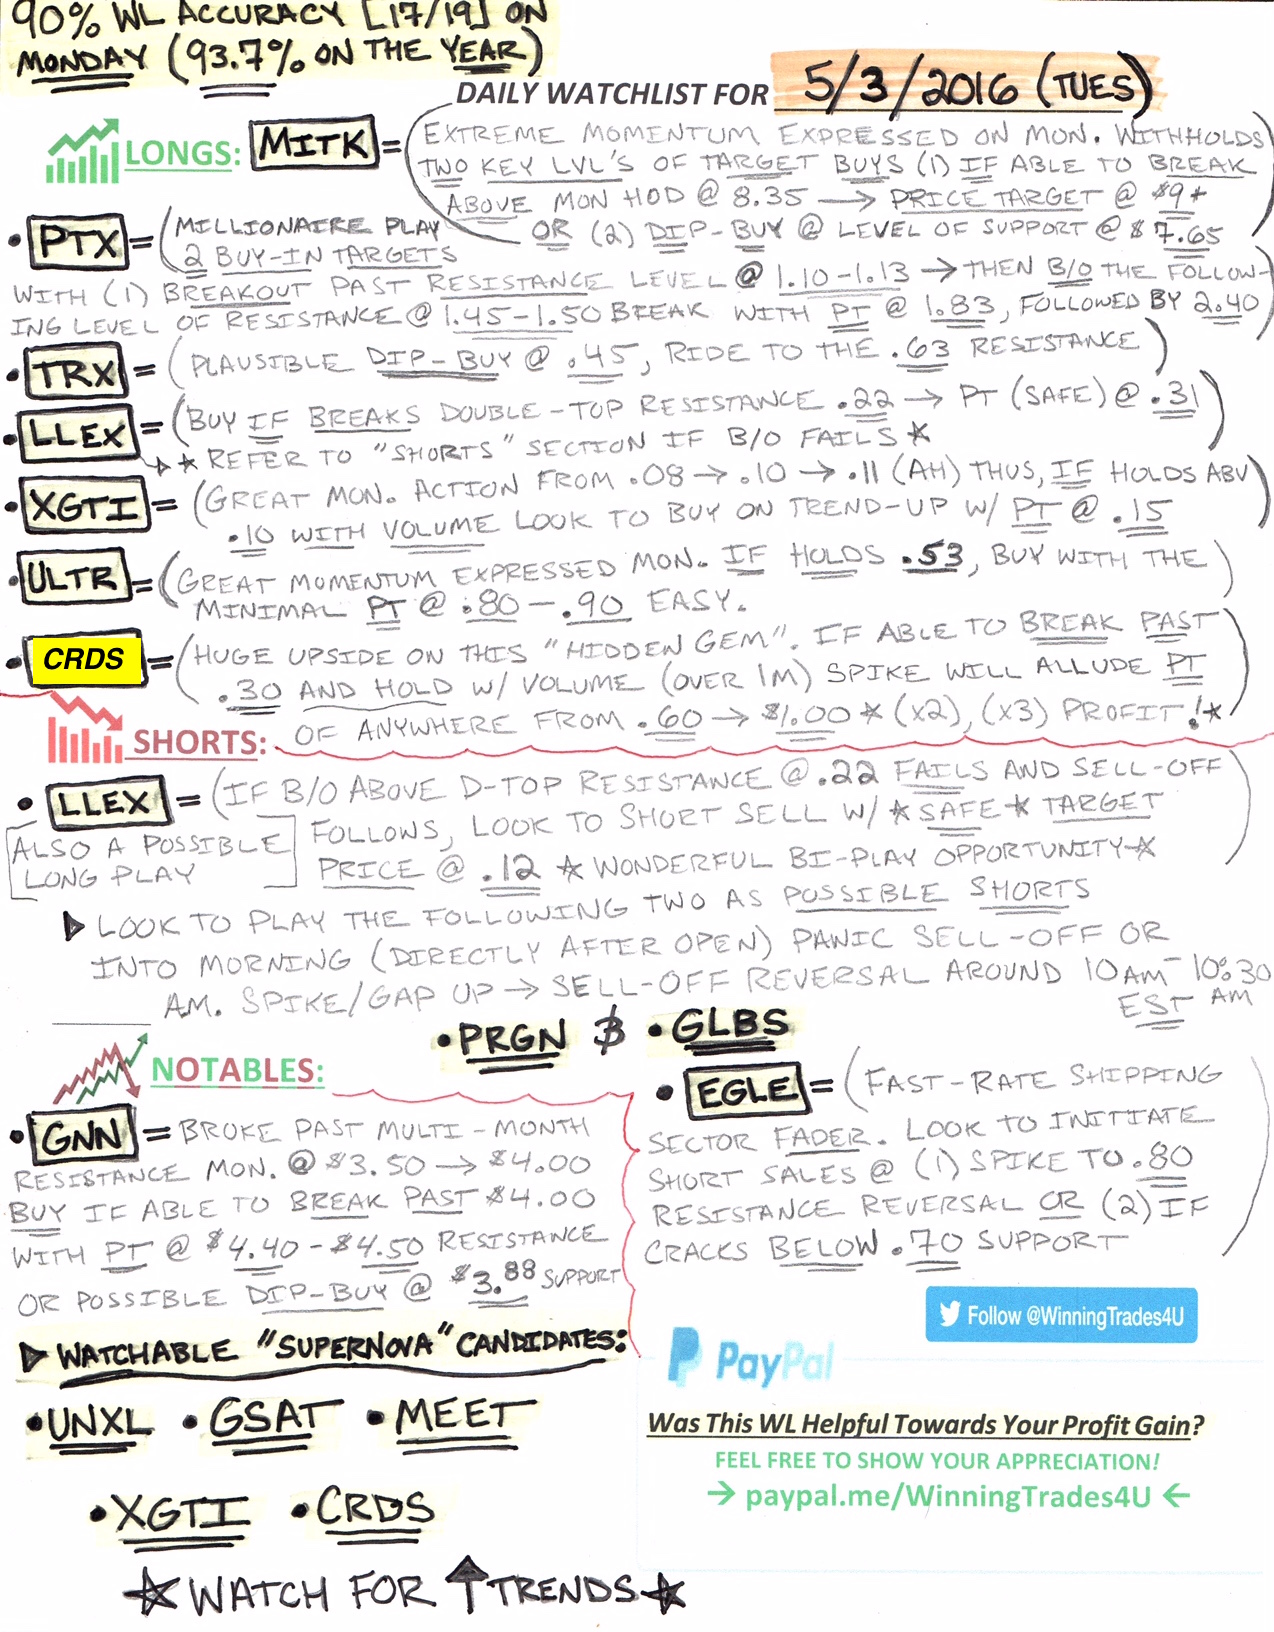 90% WL ACCURACY [17/19] ON
MONDAY (93.7% ON THE YEAR)
DAILY WATCHLIST FOR 5/3/2016 (TUES)
LONGS: MITK = (EXTREME MOMENTUM EXPRESSED ON MON. WITHHOLDS
TWO KEY LVL'S OF TARGET BUYS (1) IF ABLE TO BREAK
ABOVE MON HOD @ 8.35 → PRICE TARGET @ $9+
OR (2) DIP-BUY @ LEVEL OF SUPPORT @ $7.65)
• PTX = (MILLIONAIRE PLAY
2 BUY-IN TARGETS
WITH (1) BREAKOUT PAST RESISTANCE LEVEL @ 1.10-1.13 → THEN B/O THE FOLLOW-
ING LEVEL OF RESISTANCE @ 1.45-1.50 BREAK WITH PT @ 1.83, FOLLOWED BY 2.40)
• TRX = (PLAUSIBLE DIP-BUY @ .45, RIDE TO THE .63 RESISTANCE)
• LLEX = (BUY IF BREAKS DOUBLE-TOP RESISTANCE .22 → PT (SAFE) @ .31)
★ REFER TO "SHORTS" SECTION IF B/O FAILS ★
• XGTI = (GREAT MON. ACTION FROM .08 → .10 → .11 (AH) THUS, IF HOLDS ABV
.10 WITH VOLUME LOOK TO BUY ON TREND-UP W/ PT @ .15)
• ULTR = (GREAT MOMENTUM EXPRESSED MON. IF HOLDS .53, BUY WITH THE
MINIMAL PT @ .80 - .90 EASY.)
• CRDS = (HUGE UPSIDE ON THIS "HIDDEN GEM". IF ABLE TO BREAK PAST
.30 AND HOLD W/ VOLUME (OVER 1M) SPIKE WILL ALLUDE PT
OF ANYWHERE FROM .60 → $1.00 ★ (X2), (X3) PROFIT! ★)
SHORTS:
• LLEX = (IF B/O ABOVE D-TOP RESISTANCE @ .22 FAILS AND SELL-OFF
FOLLOWS, LOOK TO SHORT SELL W/ ★ SAFE ★ TARGET
PRICE @ .12 ★ WONDERFUL BI-PLAY OPPORTUNITY ★)
[ALSO A POSSIBLE
LONG PLAY]
▶ LOOK TO PLAY THE FOLLOWING TWO AS POSSIBLE SHORTS
INTO MORNING (DIRECTLY AFTER OPEN) PANIC SELL-OFF OR
AM. SPIKE/GAP UP → SELL-OFF REVERSAL AROUND 10AM - 10:30 AM
EST
• PRGN & • GLBS
NOTABLES:
• GNN = BROKE PAST MULTI-MONTH
RESISTANCE MON. @ $3.50 → $4.00
BUY IF ABLE TO BREAK PAST $4.00
WITH PT @ $4.40 - $4.50 RESISTANCE
OR POSSIBLE DIP-BUY @ $3.88 SUPPORT
• EGLE = (FAST-RATE SHIPPING
SECTOR FADER. LOOK TO INITIATE
SHORT SALES @ (1) SPIKE TO .80
RESISTANCE REVERSAL OR (2) IF
CRACKS BELOW .70 SUPPORT)
▶ WATCHABLE "SUPERNOVA" CANDIDATES:
• UNXL • GSAT • MEET
• XGTI • CRDS
★ WATCH FOR ↑ TRENDS ★
Follow @WinningTrades4U
PayPal
Was This WL Helpful Towards Your Profit Gain?
FEEL FREE TO SHOW YOUR APPRECIATION!
→ paypal.me/WinningTrades4U ←